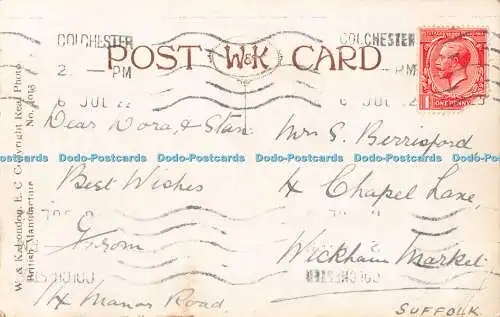 COLCHESTER
COLCHESTER
POST W&K CARD
2 - PM
- PM
6 JUL 22
6 JUL 2
ONE PENNY
W. & K. London, E. C. Copyright Real Photo
British Manufacture
Dear Dora, & Stan
Best Wishes
From
14 Manor Road.
Mrs S. Berrisford
4 Chapel Lane,
Wickham Market
SUFFOLK
COLCHESTER
COLCHESTER
Dodo-Postcards Dodo-Postcards Dodo-Postcards Dodo-Postcards Dodo-Postcards Dodo-Postcards